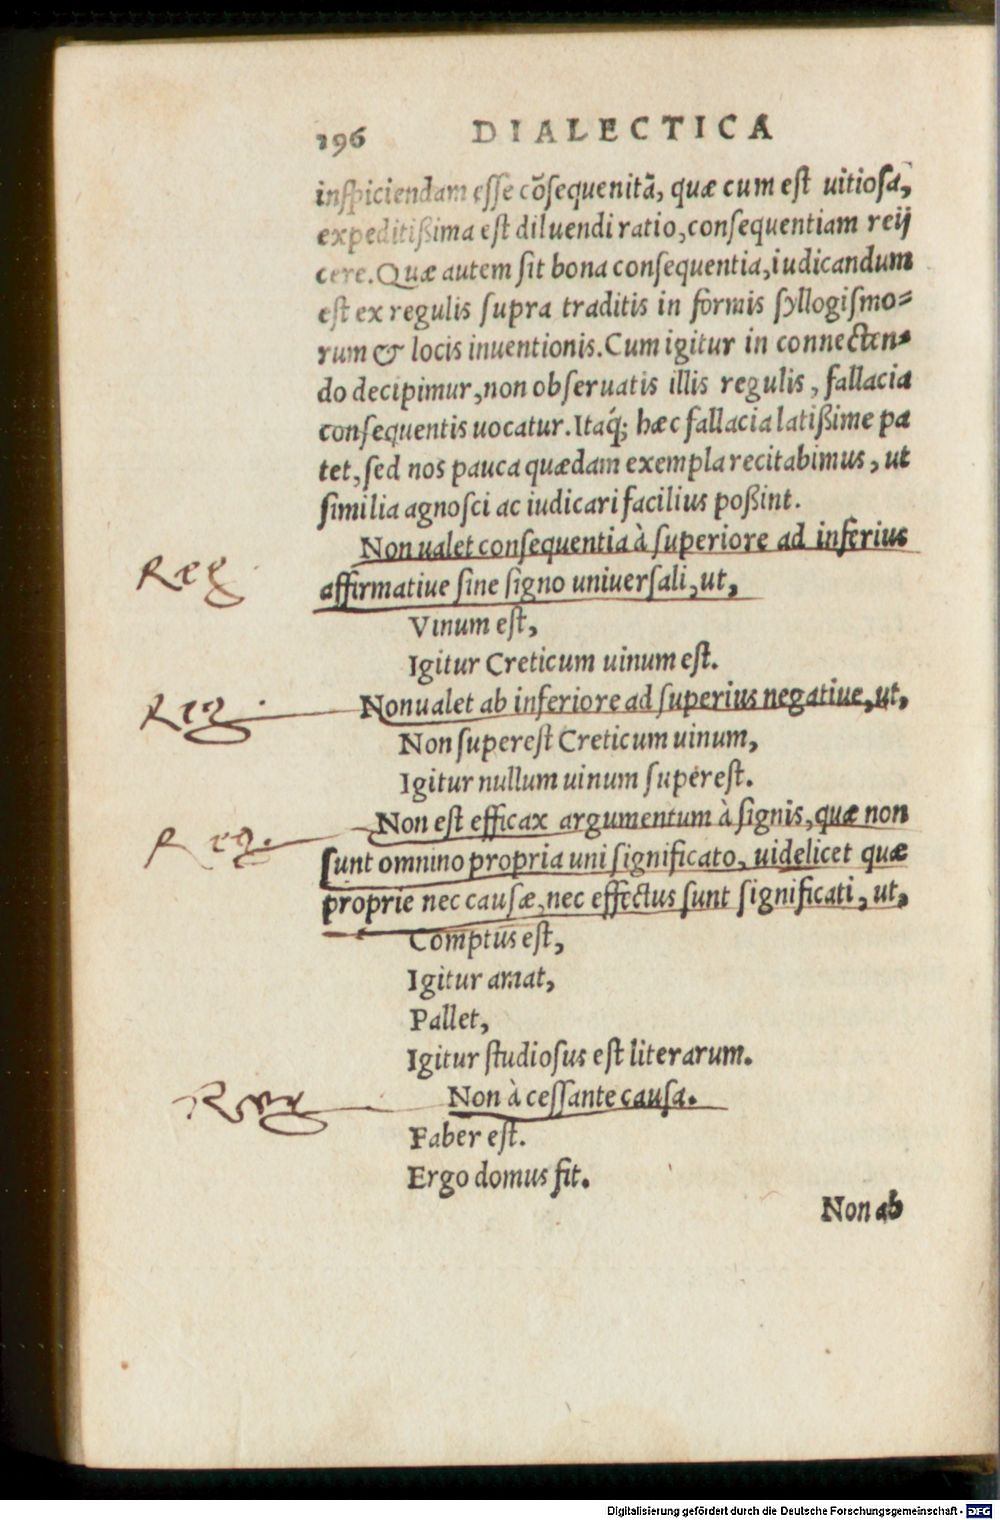 196 DIALECTICA
inſpiciendam eſſe cōſequenitā, quæ cum eſt uitioſa,
expeditißima eſt diluendi ratio, conſequentiam reij
cere. Quæ autem ſit bona conſequentia, iudicandum
eſt ex regulis ſupra traditis in formis ſyllogiſmo⸗
rum & locis inuentionis. Cum igitur in connecten⸗
do decipimur, non obſeruatis illis regulis, fallacia
conſequentis uocatur. Itaq́; hæc fallacia latißime pa
tet, ſed nos pauca quædam exempla recitabimus, ut
ſimilia agnoſci ac iudicari facilius poßint.
Non ualet conſequentia à ſuperiore ad inferius
Reg.
affirmatiue ſine ſigno uniuerſali, ut,
Vinum eſt,
Igitur Creticum uinum eſt.
Reg. Non ualet ab inferiore ad ſuperius negatiue, ut,
Non ſupereſt Creticum uinum,
Igitur nullum uinum ſupereſt.
Reg. Non eſt efficax argumentum à ſignis, quæ non
ſunt omnino propria uni ſignificato, uidelicet quæ
proprie nec cauſæ, nec effectus ſunt ſignificati, ut,
Comptus eſt,
Igitur amat,
Pallet,
Igitur ſtudioſus eſt literarum.
Reg Non à ceſſante cauſa.
Faber eſt.
Ergo domus fit.
Non ab
Digitalisierung gefördert durch die Deutsche Forschungsgemeinschaft - DFG